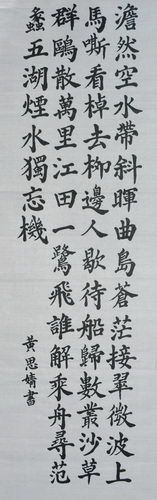 澹然空水帶斜暉曲島蒼茫接翠微波上
馬嘶看棹去柳邊人歇待船歸數叢沙草
群鷗散萬里江田一鷺飛誰解乘舟尋范
蠡五湖煙水獨忘機
黃思婧書